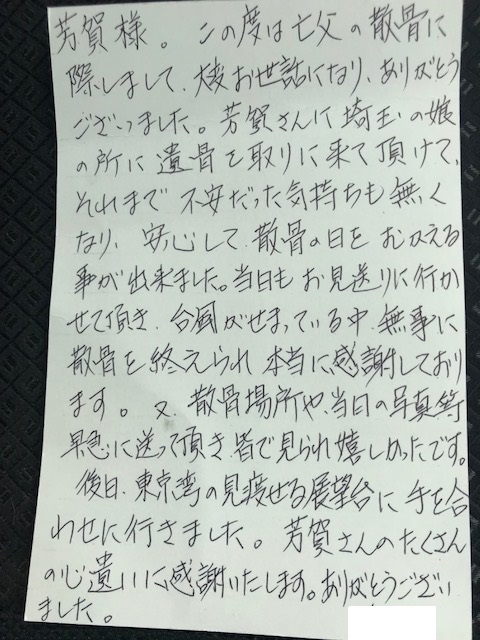 芳賀様。この度は亡父の散骨に
際しまして、大変お世話になり、ありがとう
ございました。芳賀さんに埼玉の娘
の所に遺骨を取りに来て頂けて、
それまで不安だった気持ちも無く
なり、安心して、散骨の日をむかえる
事が出来ました。当日もお見送りに行か
せて頂き、台風がせまっている中、無事に
散骨を終えられ本当に感謝しており
ます。又、散骨場所や、当日の写真等
早急に送って頂き、皆で見られ嬉しかったです。
後日、東京湾の見渡せる展望台に手を合
わせに行きました。芳賀さんのたくさん
の心遣いに感謝いたします。ありがとうござい
ました。